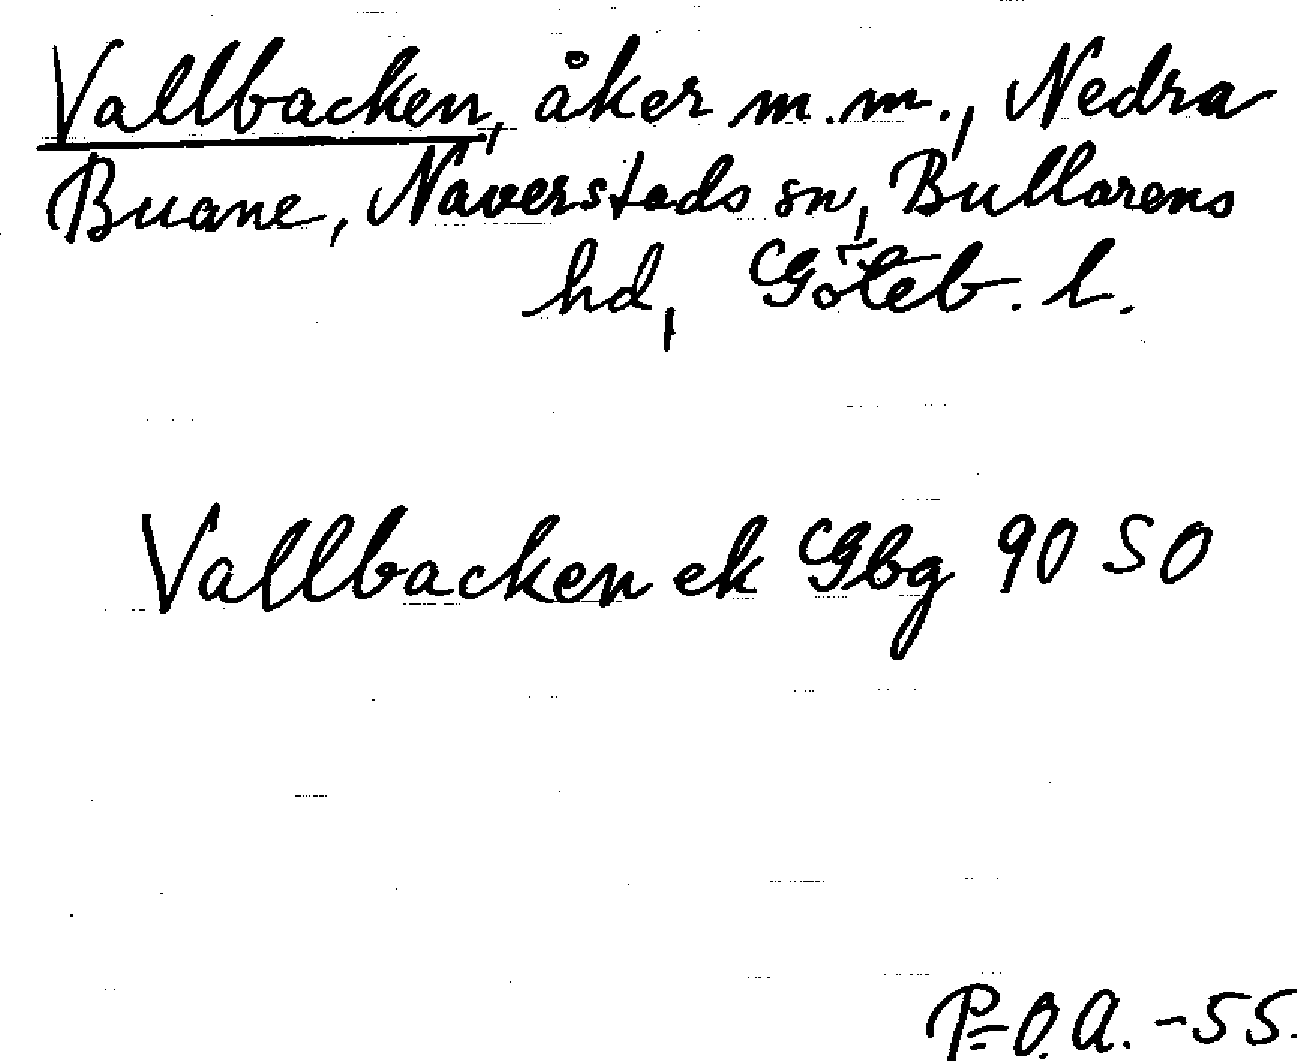 Vallbacken, åker m.m., Nedra
Buane, Naverstads sn, Bullarens
hd, Göteb. l.
Vallbacken ek Gbg 90 SO
P-O.A. -55.